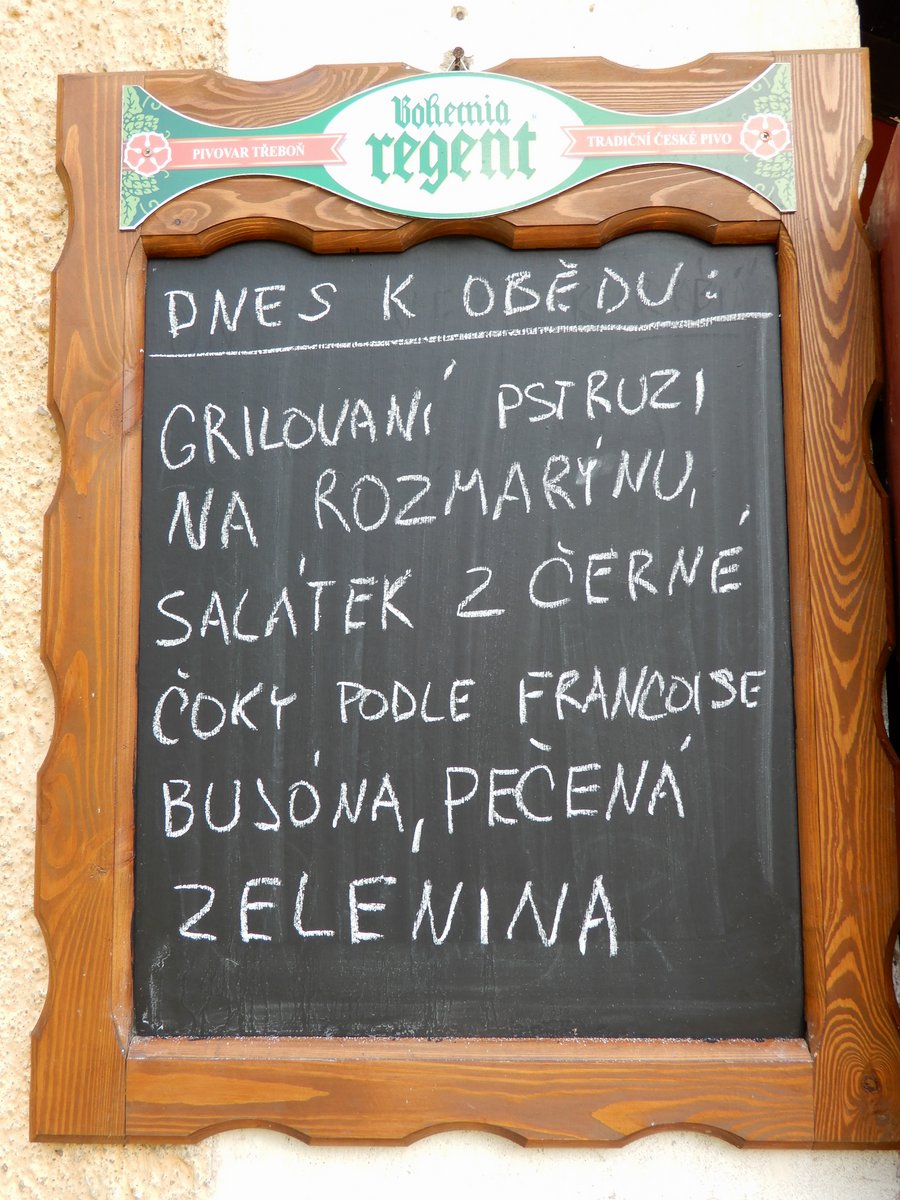 Bohemia
regent
PIVOVAR TŘEBOŇ
TRADIČNÍ ČESKÉ PIVO
DNES K OBĚDU:
GRILOVANÍ PSTRUZI
NA ROZMARÝNU,
SALÁTEK Z ČERNÉ
ČOKY PODLE FRANCOISE
BUJÓNA, PEČENÁ
ZELENINA